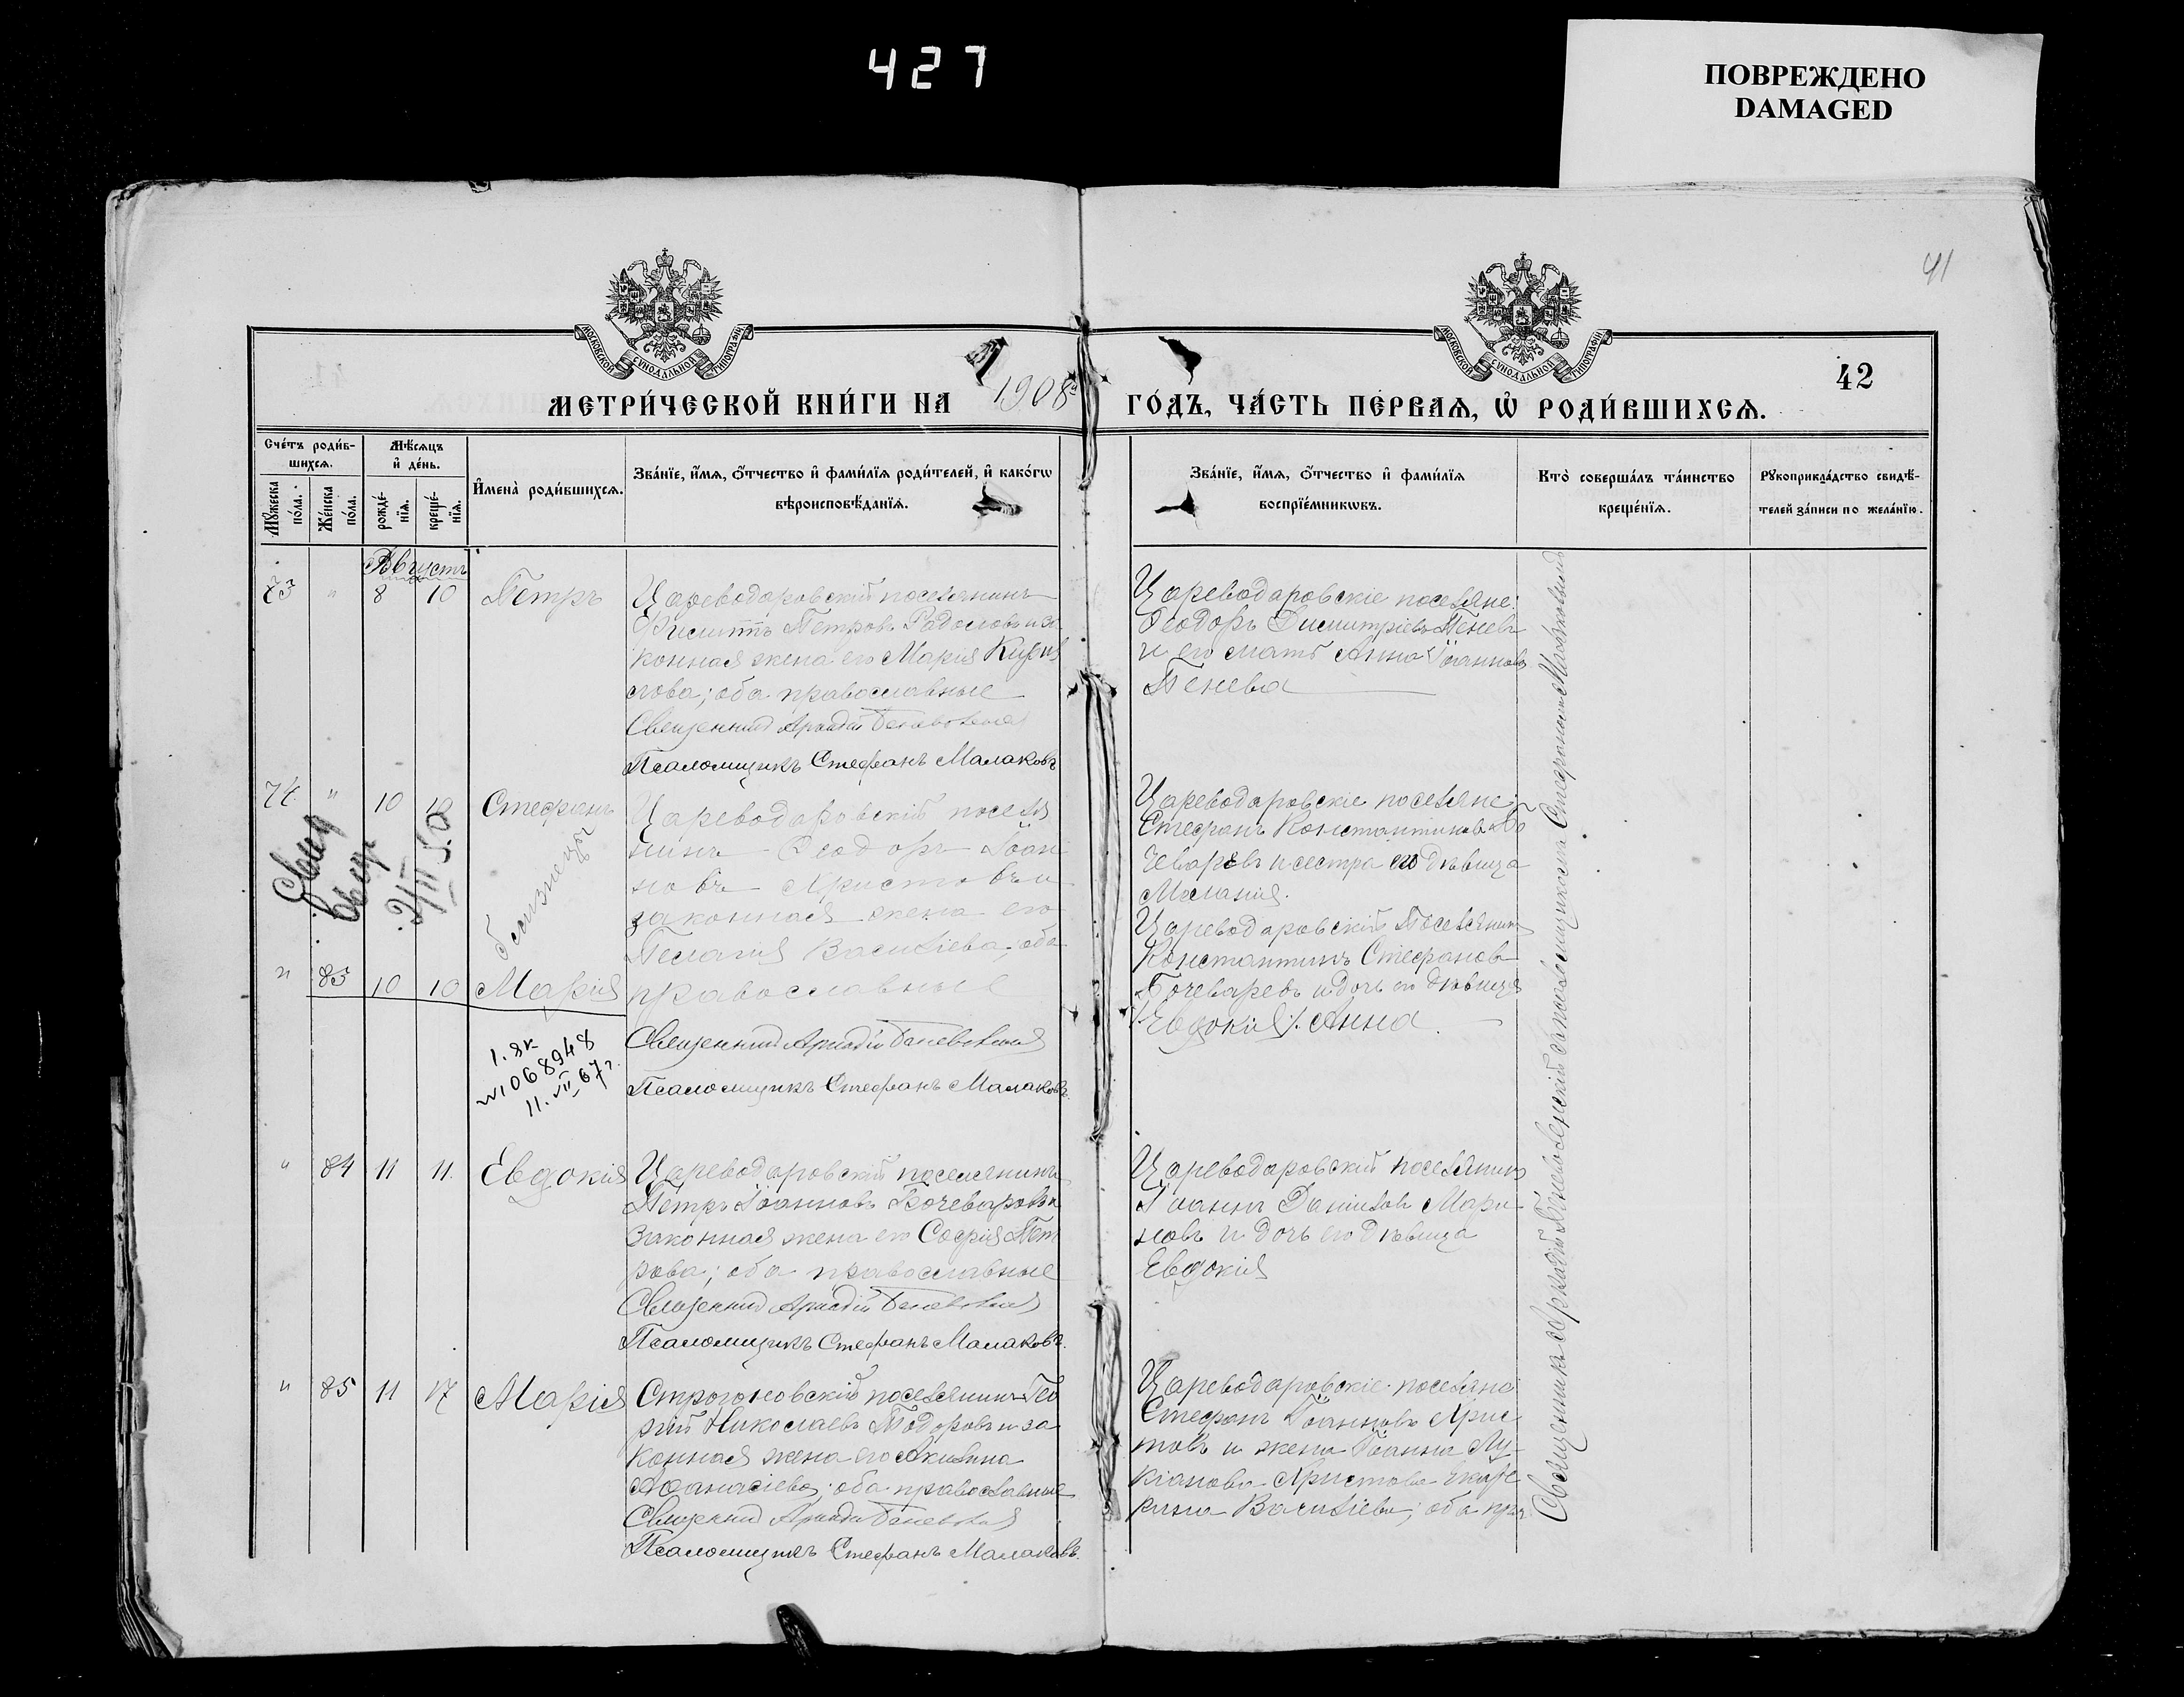 427
ПОВРЕЖДЕНО
DAMAGED
41
МОСКОВСКОЙ СѴНОДАЛЬНОЙ ТИПОГРАФІИ
МОСКОВСКОЙ СѴНОДАЛЬНОЙ ТИПОГРАФІИ
42
МЕТРИ́ЧЕСКОЙ КНИ́ГИ НА 1908й ГО́ДЪ, ЧА́СТЬ ПЕ́РВАѦ, Ѡ҆ РОДИ́ВШИХСѦ.
Сче́тъ роди́в-
шихсѧ.
Мꙋ́жеска по́ла.
Же́нска по́ла.
Мѣ́сѧцъ
и҆ де́нь.
рожде́-
нїѧ.
креще́-
нїѧ.
И҆мена̀ роди́вшихсѧ.
Зва́нїе, и҆́мѧ, ѻ҆́тчество и҆ фами́лїѧ роди́телей, и҆ како́гѡ
вѣроисповѣ́данїѧ.
Зва́нїе, и҆́мѧ, ѻ҆́тчество и҆ фами́лїѧ
воспрїе́мникѡвъ.
Кто̀ соверша́лъ та́инство
креще́нїѧ.
Рꙋкоприкла́дство свидѣ́-
телей за́писи по жела́нїю.
Августъ
73 " 8 10 Петръ
Цареводаровскій поселянинъ
Петровъ Радословъ и за
конная жена его Марія
лова; оба православные
Священникъ Аркадій
Псаломщикъ Стефанъ Малаковъ
Цареводаровскіе поселяне:
Ѳеодоръ Димитріевъ Пеневъ
и его мать Анна Іоаннова
Пенева
74 " 10 10 Стефанъ
близнецы
Цареводаровскій поселя
нинъ Ѳеодоръ Іоан
новъ Христовъ и
законная жена его
Пелагія Василіева; оба
православные
" 83 10 10 Марія
Священникъ Аркадій
Псаломщикъ Стефанъ Малаковъ.
Цареводаровскіе поселяне:
Стефанъ Константиновъ Бо
чеваревъ и сестра его дѣвица
Меланія.
Цареводаровскій Поселянинъ
Константинъ Стефановъ
Бочеваревъ и дочь его дѣвица
/Евдокія/. Анна.
068948
11. VII 67 г.
" 84 11 11. Евдокія
Цареводаровскій поселянинъ
Петръ Іоанновъ Бочеваровъ и
законная жена его Софія Пет
рова; оба православные
Священникъ Аркадій
Псаломщикъ Стефанъ Малаковъ.
Цареводаровскій поселянинъ
Іоаннъ Даніиловъ Мари
новъ и дочь его дѣвица
Евдокія
" 85 11 17 Марія
Строгоновскій поселянинъ Гео
ргій Николаевъ Тодоровъ и за
конная жена его Акилина
Аѳанасіева; оба православные
Священникъ Аркадій
Псаломщикъ Стефанъ Малаковъ.
Цареводаровскіе поселяне:
Стефанъ Іоанновъ Хрис
товъ и жена Іоанна Лу-
кіанова Христова Екате
рина Василіева; оба пра
Священникъ Аркадій съ псаломщикомъ Стефаномъ Малаковымъ